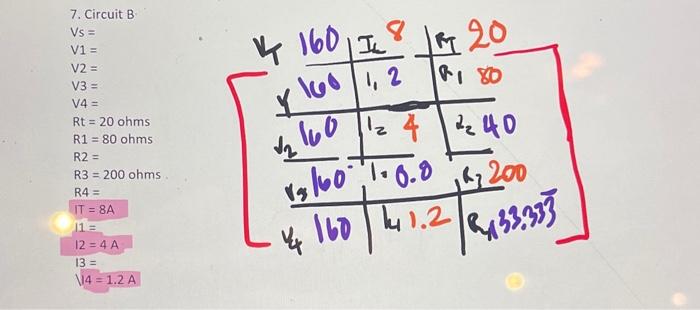 7. Circuit B
Vs =
V1 =
V2 =
V3 =
V4 =
Rt = 20 ohms
R1 = 80 ohms
R2 =
R3 = 200 ohms
R4 =
IT = 8A
I1 =
I2 = 4 A
I3 =
I4 = 1.2 A
VT 160 IT 8 RT 20
V 160 I1 2 R1 80
V2 160 I2 4 R2 40
V3 160 I3 0.8 R3 200
V4 160 I4 1.2 R4 133.333